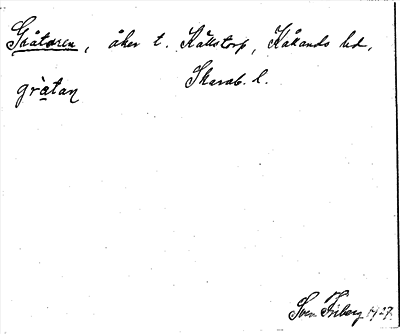 Gråtaren, åker t. Källstorp, Kåkands hd,
Skarab. l.
gràtan
Sven Friberg 1927.